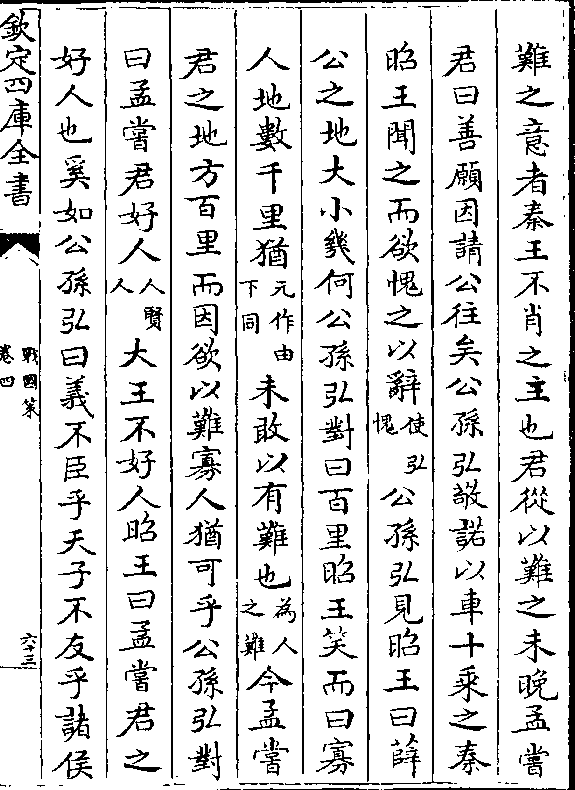 難之意者秦王不肖之主也君從以難之未晚孟嘗
君曰善願因請公往矣公孫弘敬諾以車十乘之秦
昭王聞之而欲愧之以辭使弘愧公孫弘見昭王曰薛
公之地大小幾何公孫弘對曰百里昭王笑而曰寡
人地數千里猶元作由下同未敢以有難也為人之難今孟嘗
君之地方百里而因欲以難寡人猶可乎公孫弘對
曰孟嘗君好人賢人人大王不好人昭王曰孟嘗君之
好人也奚如公孫弘曰義不臣乎天子不友乎諸侯
欽定四庫全書
戰國策
卷四
六十三